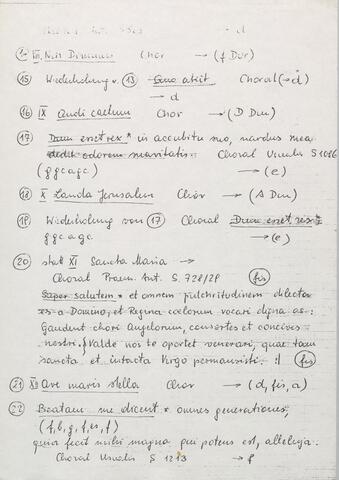 → d
VIII. Nisi Dominus Chor → (f Dur)
15) Wiederholung v. 13) Choral (→ d)
→ d
16) IX Audi coelum Chor → (D Dur)
17) Dum esset rex * in accubitu suo, nardus mea
dedit odorem suavitatis. Choral Usualis S 1086
(g g c a g c) → (e)
18) X Lauda Jerusalem Chor → (A Dur)
19) Wiederholung von 17) Choral Dum esset rex
g g c a g c. → (e)
20) statt XI Sancta Maria →
Choral Praem. Ant. S. 728/29 (fis)
Super salutem * et omnem pulchritudinem dilecta
es a Domino, et Regina coelorum vocari digna es:
Gaudent chori Angelorum, consortes et concives
nostri. Valde nos te oportet venerari, quae tam
sancta et intacta Virgo permansisti. :| (fis)
21) XII Ave maris stella Chor → (d, fis, a)
22) Beatam me dicent * omnes generationes,
(f, b, g, f, es, f)
quia fecit mihi magna qui potens est, alleluja.
Choral Usualis S 1213 → f